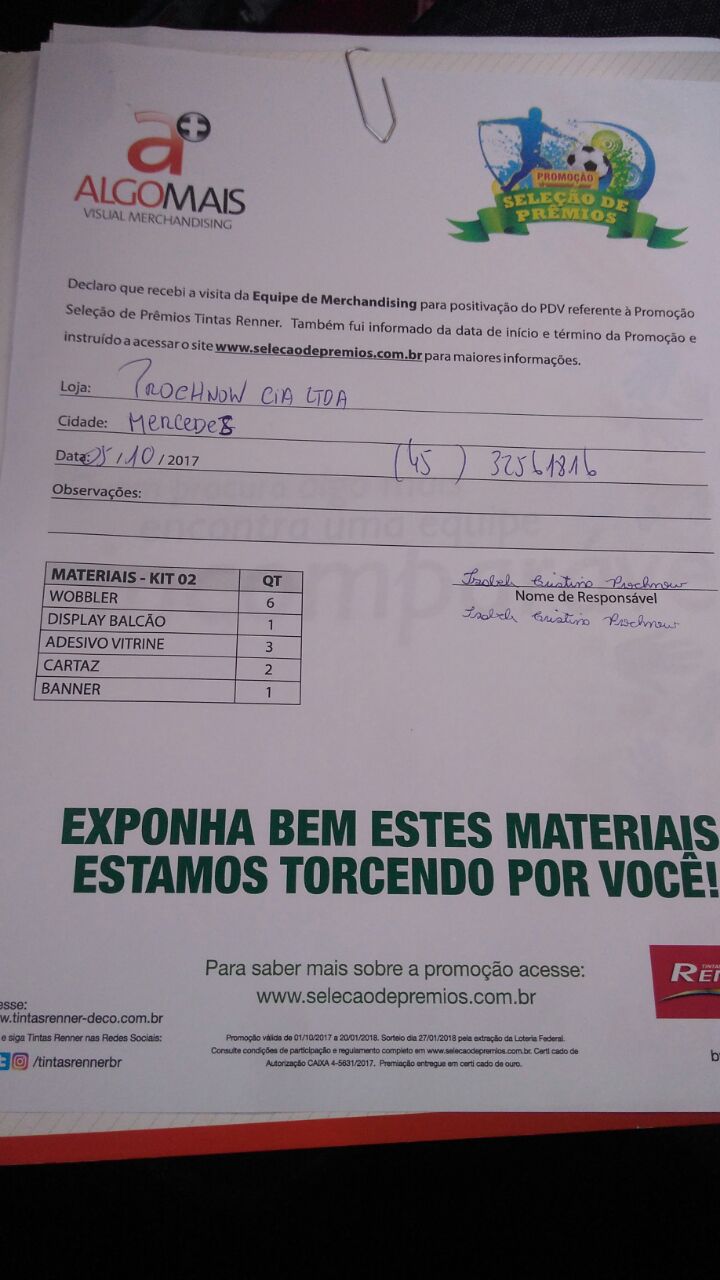 a+
ALGOMAIS
VISUAL MERCHANDISING
PROMOÇÃO
SELEÇÃO DE
PRÊMIOS
Declaro que recebi a visita da Equipe de Merchandising para positivação do PDV referente à Promoção
Seleção de Prêmios Tintas Renner. Também fui informado da data de início e término da Promoção e
instruído a acessar o site www.selecaodepremios.com.br para maiores informações.
Loja: PROCHNOW CIA LTDA
Cidade: MERCEDES
Data: 05/10/2017 (45) 32561816
Observações:
MATERIAIS - KIT 02 QT
WOBBLER 6
DISPLAY BALCÃO 1
ADESIVO VITRINE 3
CARTAZ 2
BANNER 1
Isabel Cristina Prochnow
Nome de Responsável
Isabel Cristina Prochnow
EXPONHA BEM ESTES MATERIAIS
ESTAMOS TORCENDO POR VOCÊ!
Para saber mais sobre a promoção acesse:
www.selecaodepremios.com.br
esse:
w.tintasrenner-deco.com.br
e siga Tintas Renner nas Redes Sociais:
/tintasrennerbr
Promoção válida de 01/10/2017 a 20/01/2018. Sorteio dia 27/01/2018 pela extração da Loteria Federal.
Consulte condições de participação e regulamento completo em www.selecaodepremios.com.br. Certi cado de
Autorização CAIXA 4-5631/2017. Premiação entregue em certi cado de ouro.
TINTAS
REN
b